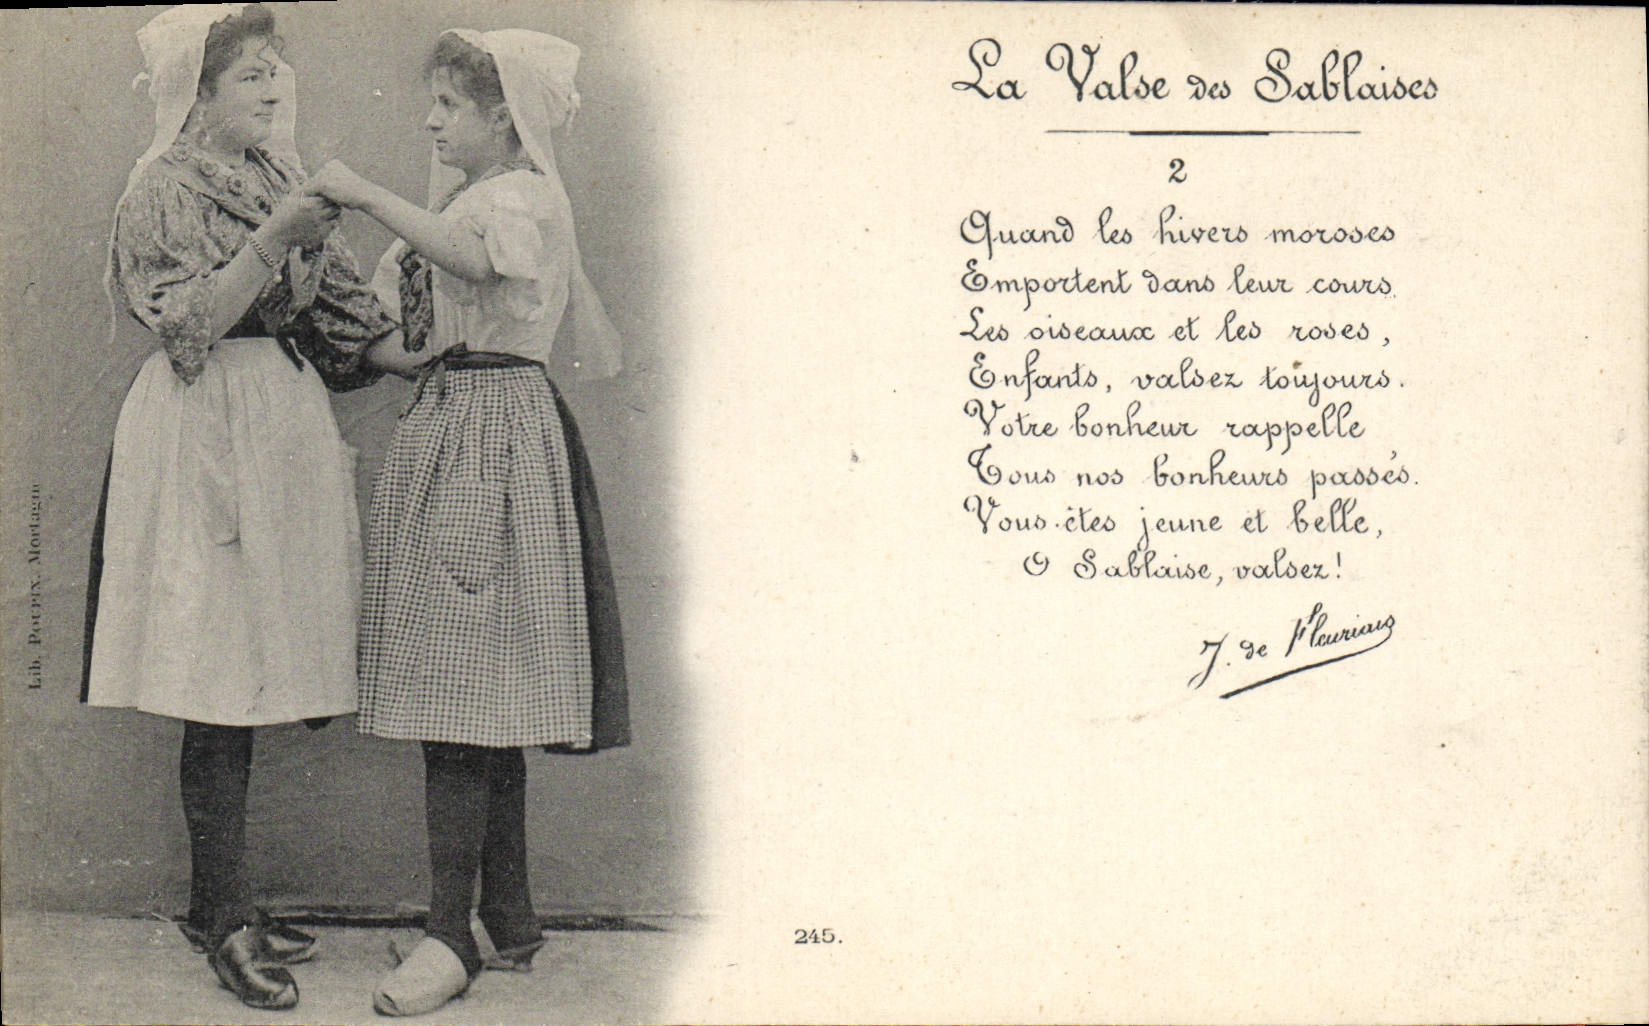 La Valse des Sablaises
2
Quand les hivers moroses
Emportent dans leur cours
Les oiseaux et les roses,
Enfants, valsez toujours.
Votre bonheur rappelle
Tous nos bonheurs passés.
Vous êtes jeune et belle,
O Sablaise, valsez!
J. de Fleuriaus
245.
Lib. POUPIN, Mortagne